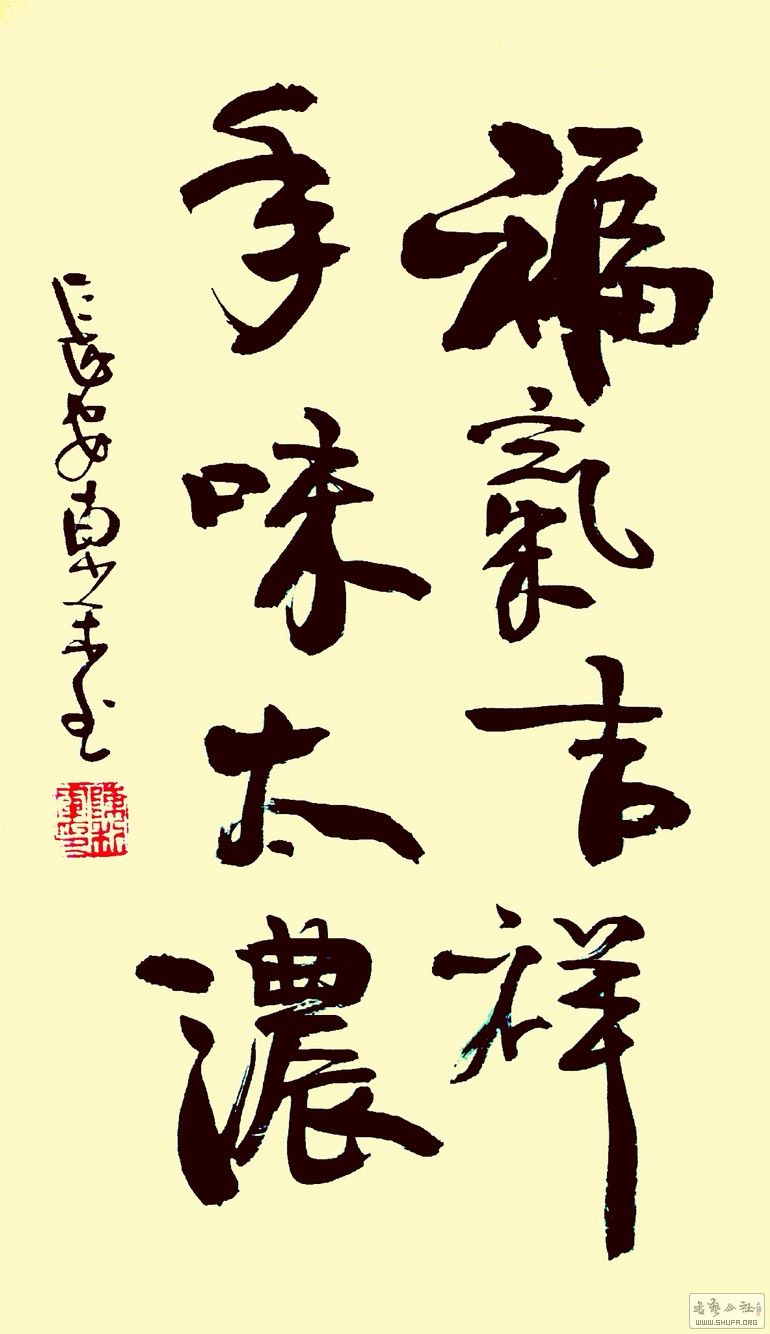 福氣吉祥
年味太濃
書藝公社
WWW.SHUFA.ORG